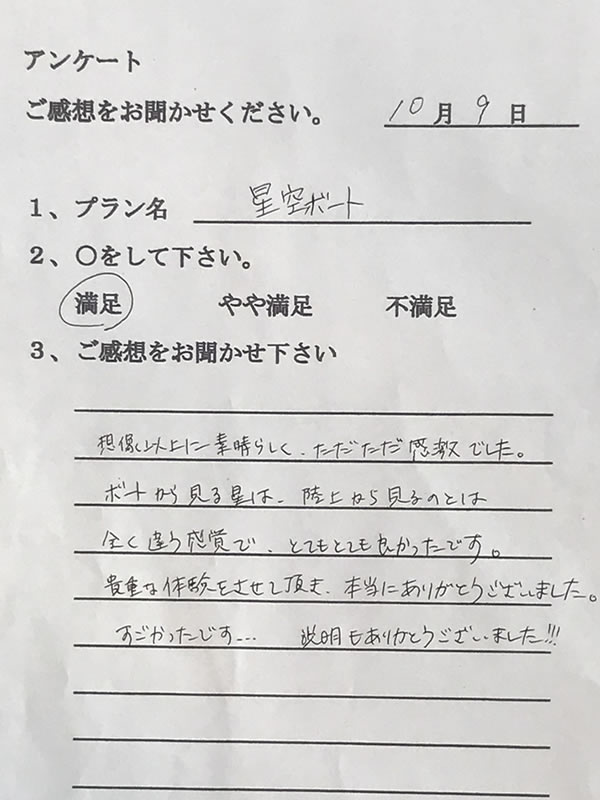 アンケート
ご感想をお聞かせください。 10月 9日
1、プラン名 星空ボート
2、〇をして下さい。
満足 やや満足 不満足
3、ご感想をお聞かせ下さい
想像以上に素晴らしく、ただただ感激でした。
ボートから見る星は、陸上から見るのとは
全く違う感覚で、とてもとても良かったです。
貴重な体験をさせて頂き、本当にありがとうございました。
すごかったです… 説明もありがとうございました!!!